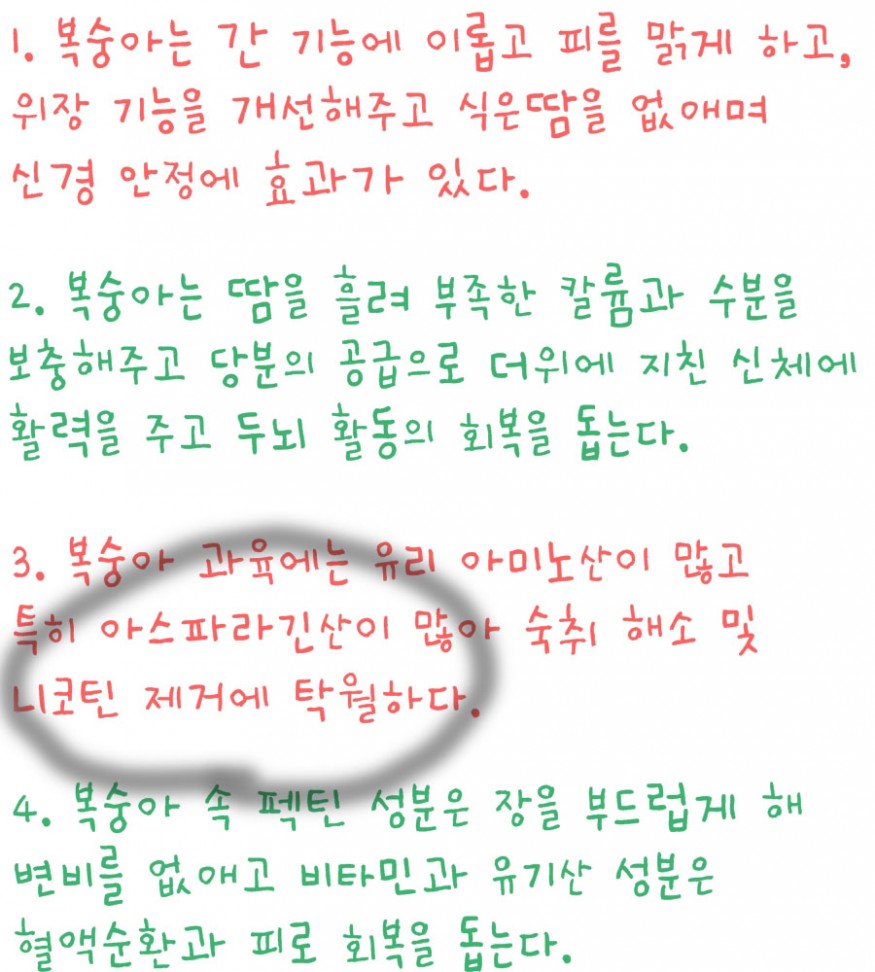 1. 복숭아는 간 기능에 이롭고 피를 맑게 하고,
위장 기능을 개선해주고 식은땀을 없애며
신경 안정에 효과가 있다.
2. 복숭아는 땀을 흘려 부족한 칼륨과 수분을
보충해주고 당분의 공급으로 더위에 지친 신체에
활력을 주고 두뇌 활동의 회복을 돕는다.
3. 복숭아 과육에는 유리 아미노산이 많고
특히 아스파라긴산이 많아 숙취 해소 및
니코틴 제거에 탁월하다.
4. 복숭아 속 펙틴 성분은 장을 부드럽게 해
변비를 없애고 비타민과 유기산 성분은
혈액순환과 피로 회복을 돕는다.